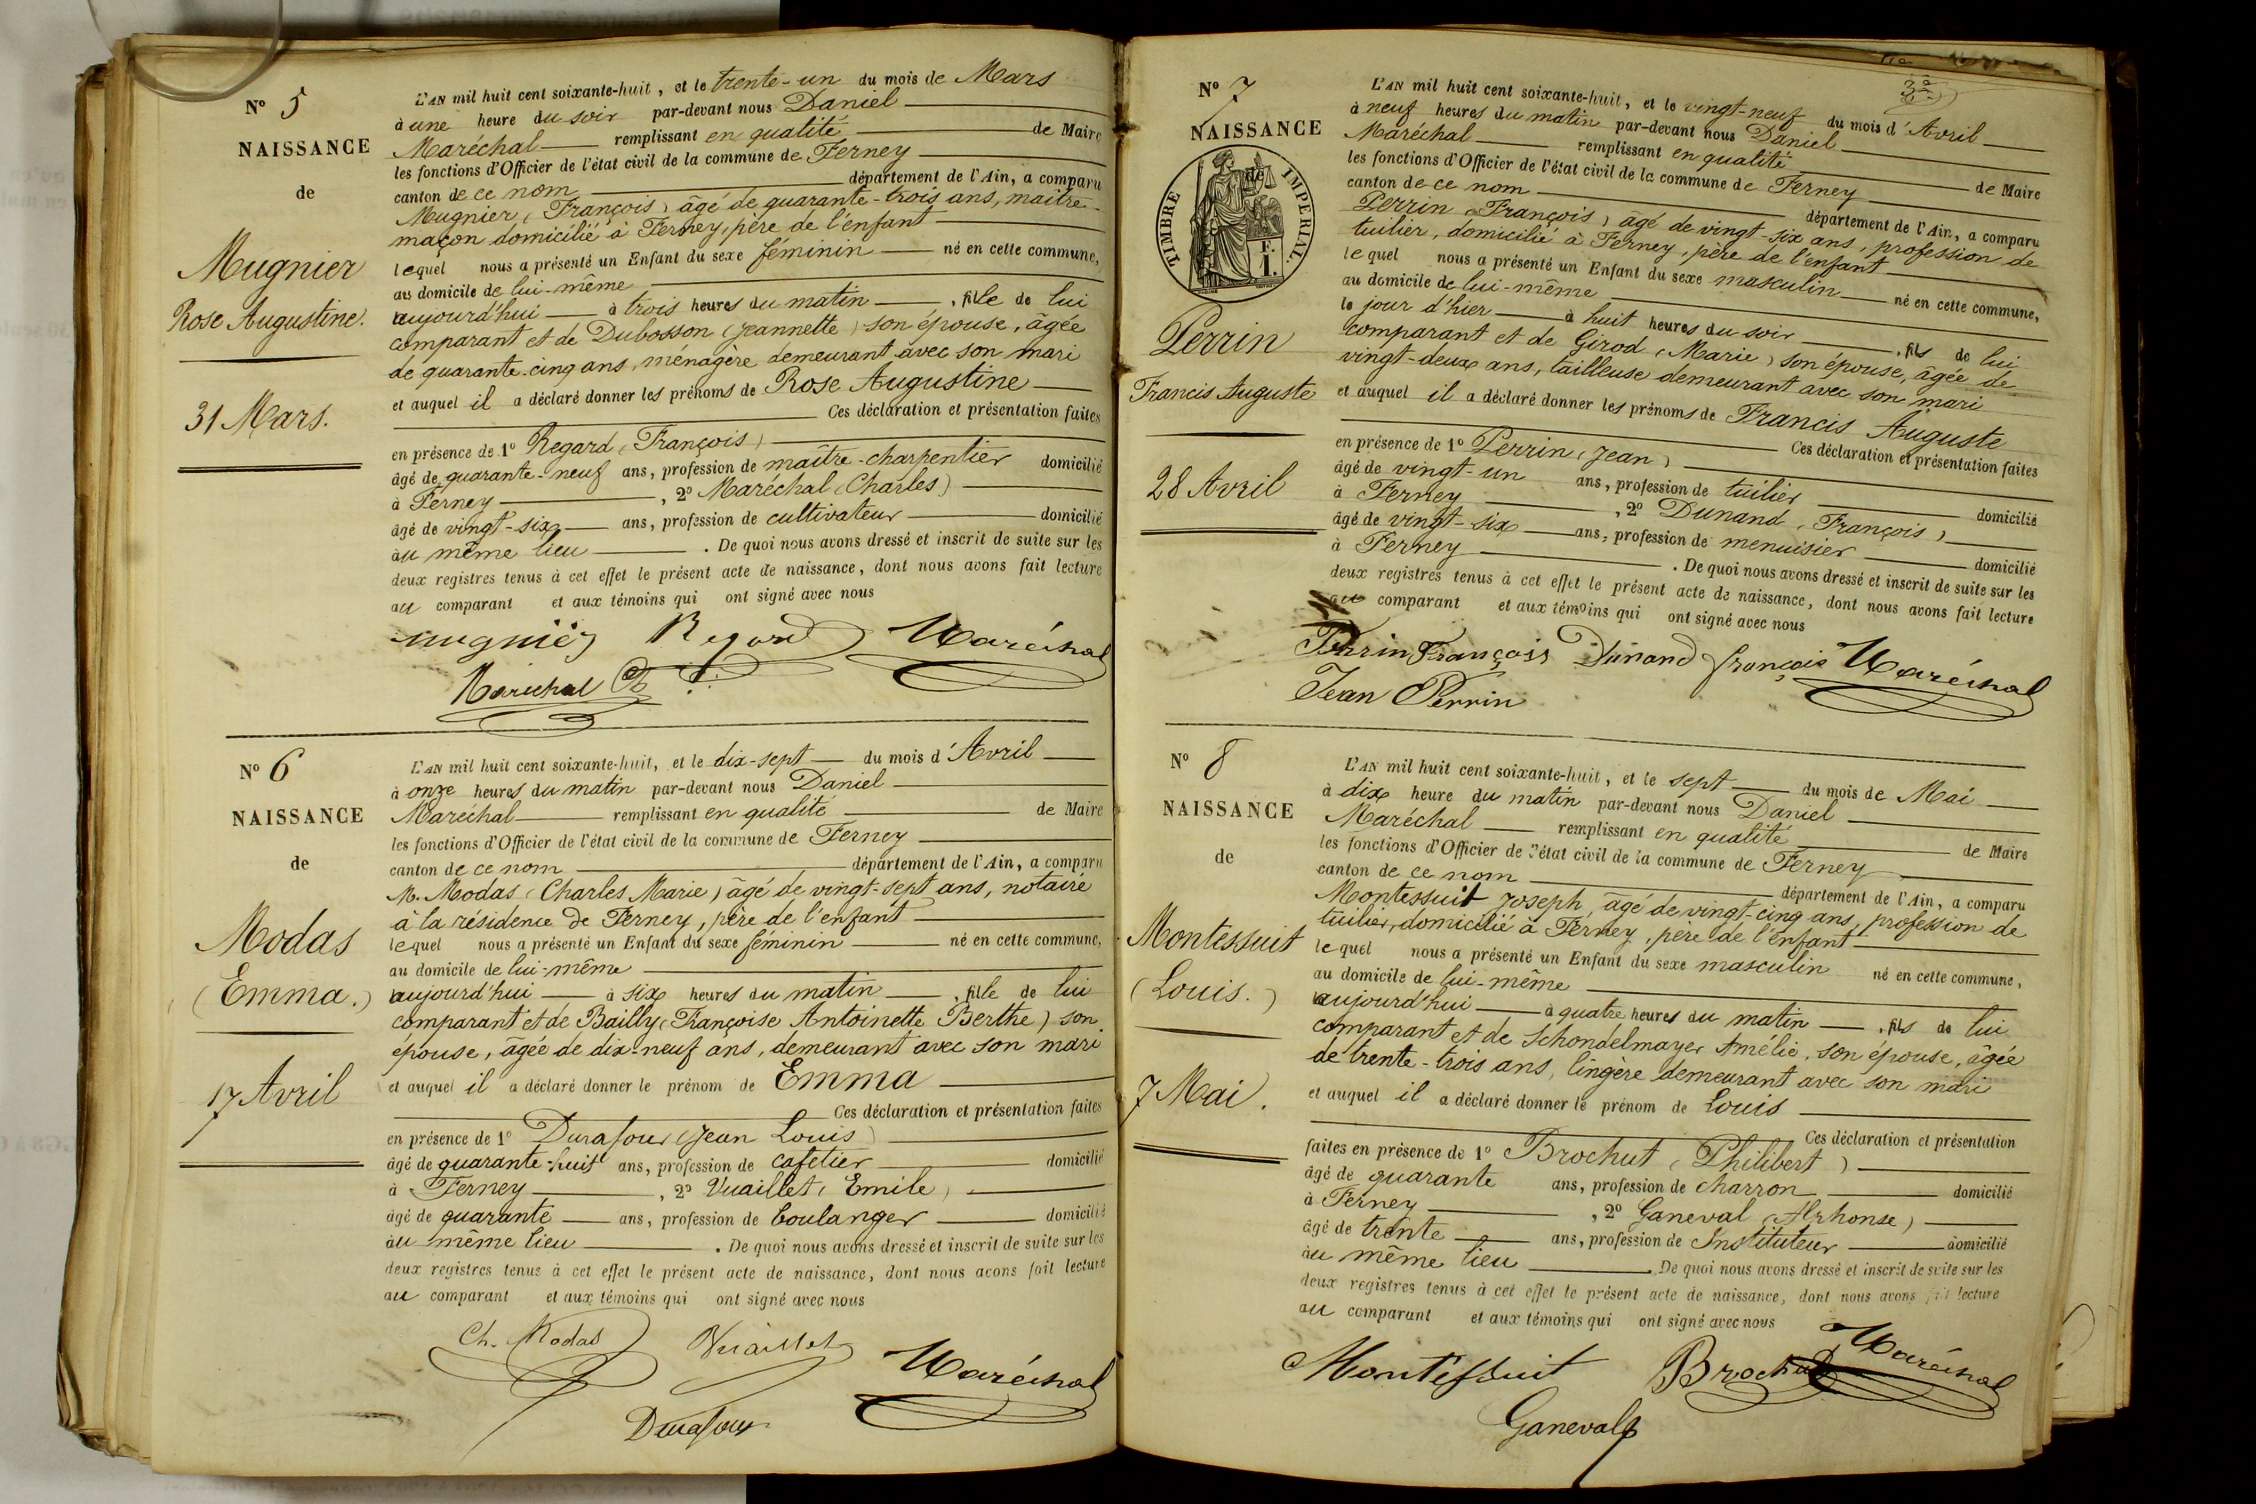 N° 5
NAISSANCE
de
Mugnier
Rose Augustine.
31 Mars.
L'AN mil huit cent soixante-huit, et le trente-un du mois de Mars
à une heure du soir par-devant nous Daniel
Maréchal remplissant en qualité de Maire
les fonctions d'Officier de l'état civil de la commune de Ferney
canton de ce nom département de l'Ain, a comparu
Mugnier (François) âgé de quarante-trois ans, maitre-
maçon domicilié à Ferney, père de l'enfant
lequel nous a présenté un Enfant du sexe féminin né en cette commune,
au domicile de lui-même
aujourd'hui à trois heures du matin, fille de lui
comparant et de Dubosson (Jeannette) son épouse, âgée
de quarante-cinq ans, ménagère demeurant avec son mari
et auquel il a déclaré donner les prénoms de Rose Augustine
Ces déclaration et présentation faites
en présence de 1° Regard (François)
âgé de quarante-neuf ans, profession de maître-charpentier domicilié
à Ferney, 2° Maréchal (Charles)
âgé de vingt-six ans, profession de cultivateur domicilié
au même lieu. De quoi nous avons dressé et inscrit de suite sur les
deux registres tenus à cet effet le présent acte de naissance, dont nous avons fait lecture
au comparant et aux témoins qui ont signé avec nous
mugnier Regard Maréchal
Marechal Ch
N° 6
NAISSANCE
de
Modas
(Emma.)
17 Avril
L'AN mil huit cent soixante-huit, et le dix-sept du mois d'Avril
à onze heures du matin par-devant nous Daniel
Maréchal remplissant en qualité de Maire
les fonctions d'Officier de l'état civil de la commune de Ferney
canton de ce nom département de l'Ain, a comparu
M. Modas (Charles Marie) âgé de vingt-sept ans, notaire
à la résidence de Ferney, père de l'enfant
lequel nous a présenté un Enfant du sexe féminin né en cette commune,
au domicile de lui-même
aujourd'hui à six heures du matin, fille de lui
comparant et de Bailly (Françoise Antoinette Berthe) son
épouse, âgée de dix-neuf ans, demeurant avec son mari
et auquel il a déclaré donner le prénom de Emma
Ces déclaration et présentation faites
en présence de 1° Durafour (Jean Louis)
âgé de quarante-huit ans, profession de cafetier domicilié
à Ferney, 2° Vuaillet (Emile)
âgé de quarante ans, profession de boulanger domicilié
au même lieu. De quoi nous avons dressé et inscrit de suite sur les
deux registres tenus à cet effet le présent acte de naissance, dont nous avons fait lecture
au comparant et aux témoins qui ont signé avec nous
Ch. Modas Vuaillet Maréchal
Durafour
N° 7
NAISSANCE
de
TIMBRE IMPERIAL.
F.
1.
Perrin
Francis Auguste
28 Avril
L'AN mil huit cent soixante-huit, et le vingt-neuf du mois d'Avril
à neuf heures du matin par-devant nous Daniel
Maréchal remplissant en qualité de Maire
les fonctions d'Officier de l'état civil de la commune de Ferney
canton de ce nom département de l'Ain, a comparu
Perrin (François) âgé de vingt-six ans, profession de
tuilier, domicilié à Ferney, père de l'enfant
lequel nous a présenté un Enfant du sexe masculin né en cette commune,
au domicile de lui-même
le jour d'hier à huit heures du soir, fils de lui
comparant et de Girod (Marie) son épouse, âgée de
vingt-deux ans, tailleuse demeurant avec son mari
et auquel il a déclaré donner les prénoms de Francis Auguste
Ces déclaration et présentation faites
en présence de 1° Perrin (Jean)
âgé de vingt-un ans, profession de tuilier domicilié
à Ferney, 2° Dunand (François)
âgé de vingt-six ans, profession de menuisier domicilié
à Ferney. De quoi nous avons dressé et inscrit de suite sur les
deux registres tenus à cet effet le présent acte de naissance, dont nous avons fait lecture
au comparant et aux témoins qui ont signé avec nous
Perrin François Dunand françois Maréchal
Jean Perrin
N° 8
NAISSANCE
de
Montessuit
(Louis.)
7 Mai.
L'AN mil huit cent soixante-huit, et le sept du mois de Mai
à dix heure du matin par-devant nous Daniel
Maréchal remplissant en qualité de Maire
les fonctions d'Officier de l'état civil de la commune de Ferney
canton de ce nom département de l'Ain, a comparu
Montessuit Joseph âgé de vingt-cinq ans, profession de
tuilier, domicilié à Ferney, père de l'enfant
lequel nous a présenté un Enfant du sexe masculin né en cette commune,
au domicile de lui-même
aujourd'hui à quatre heures du matin, fils de lui
comparant et de Schondelmayer Amélie, son épouse, âgée
de trente-trois ans, lingère demeurant avec son mari
et auquel il a déclaré donner le prénom de Louis
Ces déclaration et présentation
faites en présence de 1° Brochut (Philibert)
âgé de quarante ans, profession de charron domicilié
à Ferney, 2° Ganeval (Alphonse)
âgé de trente ans, profession de Instituteur domicilié
au même lieu. De quoi nous avons dressé et inscrit de suite sur les
deux registres tenus à cet effet le présent acte de naissance, dont nous avons fait lecture
au comparant et aux témoins qui ont signé avec nous
Montessuit Brochut Maréchal
Ganeval